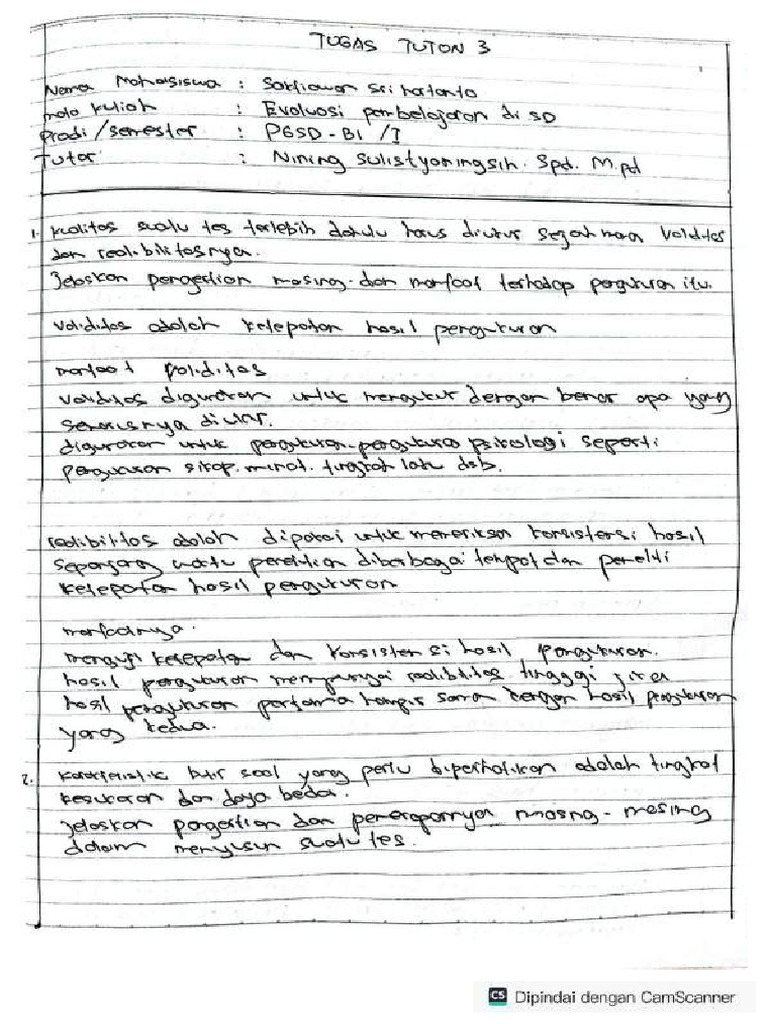 TUGAS TUTON 3
Nama Mahasiswa : Sri hartanto
mata kuliah : Evaluasi pembelajaran di SD
Prodi / semester : PGSD - BI / I
Tutor : Nining Sulistyaningsih. Spd. M.pd
1. kualitas suatu tes terlebih dahulu harus diukur sejauh mana validitas
dan realibilitasnya.
Jelaskan pengertian masing-dan manfaat terhadap pengukuran itu.
validitas adalah ketepatan hasil pengukuran
manfaat validitas
validitas digunakan untuk mengukur dengan benar apa yang
seharusnya diukur.
digunakan untuk pengukuran-pengukuran psikologi seperti
pengukuran sikap. minat. tingkah laku dsb.
realibilitas adalah dipakai untuk memeriksa konsistensi hasil
sepanjang waktu penelitian diberbagai tempat dan peneliti
ketepatan hasil pengukuran
manfaatnya.
menguji ketepatan dan konsistensi hasil pengukuran.
hasil pengukuran mempunyai realiblitas tinggi jika
hasil pengukuran pertama hampir sama dengan hasil pengukuran
yang kedua.
2. karakteristik butir soal yang perlu diperhatikan adalah tingkat
kesukaran dan daya beda.
jelaskan pengertian dan penerapannya masing-masing
dalam menyusun suatu tes.
CS Dipindai dengan CamScanner